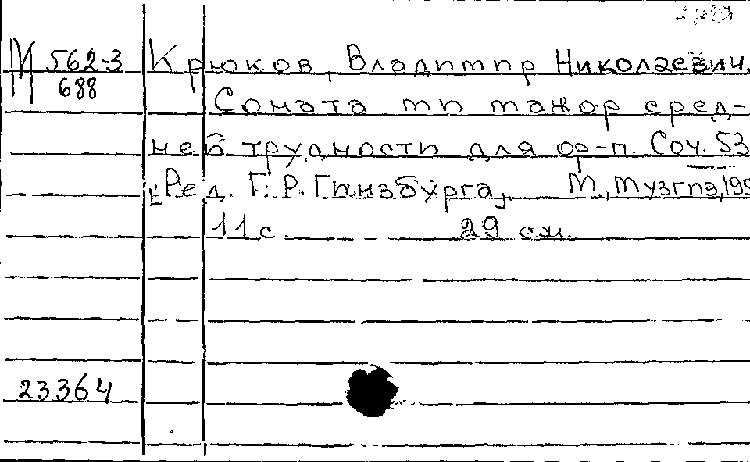 М 562-3
688
Крюков, Владимир Николаевич.
Соната ми мажор сред-
ней трудности для ф-п. Соч. 53
[Ред. Г. Р. Гинзбурга] М., Музгиз, 195
11 с. 29 см.
23364